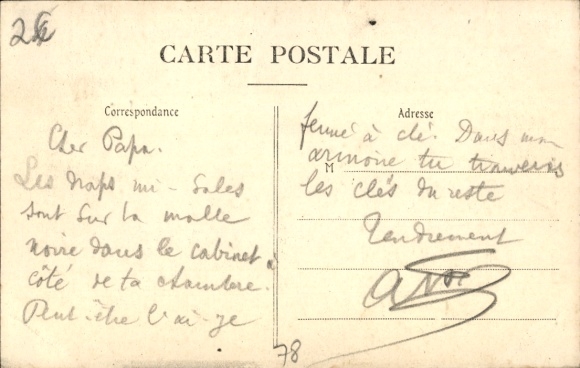 CARTE POSTALE
Correspondance
Cher Papa.
Les draps mi-sales
sont sur la malle
noire dans le cabinet à
côté de ta chambre.
Peut-être l'ai-je
Adresse
fermé à clé. Dans mon
M armoire tu trouveras
les clés du reste
Tendrement
78